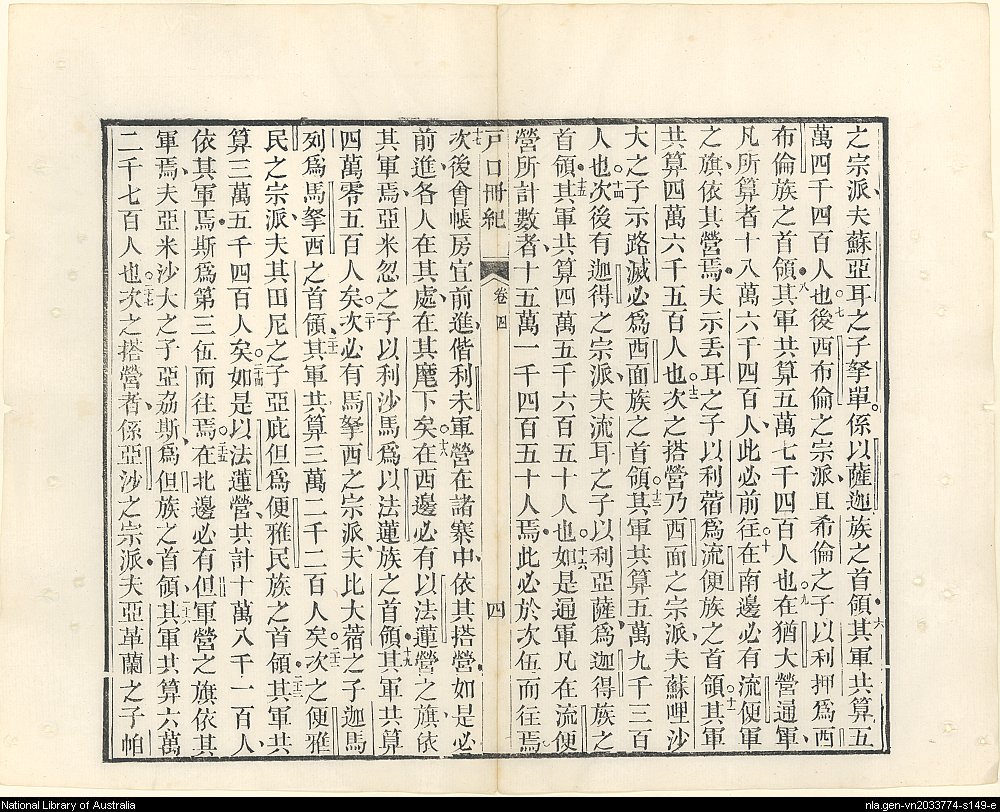 之宗派、夫蘇亞耳之子拏單。係以薩迦族之首領。六其軍共算五
萬四千四百人也。七後西布倫之宗派且希倫之子以利押爲西
布倫族之首領。八其軍共算五萬七千四百人也。九在猶大營通軍、
凡所算者十八萬六千四百人、此必前往。十在南邊必有流便軍
之旗依其營焉。夫示丟耳之子以利蓿爲流便族之首領。十一其軍
共算四萬六千五百人也。十二次之搭營乃西面之宗派、夫蘇哩沙
大之子示路滅必爲西面族之首領。十三其軍共算五萬九千三百
人也。十四次後有迦得之宗派、夫流耳之子以利亞薩爲迦得族之
首領。十五其軍共算四萬五千六百五十人也。十六如是通軍凡在流便
營所計數者、十五萬一千四百五十人焉。此必於次伍而往焉。
戶口冊紀 卷四 四
十七次後會帳房宜前進、偕利未軍營在諸寨中、依其搭營。如是必
前進、各人在其處、在其麾下矣。十八在西邊必有以法蓮營之旗、依
其軍焉、亞米忽之子以利沙馬爲以法蓮族之首領。十九其軍共算
四萬零五百人矣。二十次必有馬拏西之宗派、夫比大蓿之子迦馬
列爲馬拏西之首領。二十一其軍共算三萬二千二百人矣。二十二次之便雅
民之宗派、夫其田尼之子亞庇但爲便雅民族之首領。二十三其軍共
算三萬五千四百人矣。二十四如是以法蓮營、共計十萬八千一百人、
依其軍焉、斯爲第三伍而往焉。二十五在北邊必有但軍營之旗、依其
軍焉、夫亞米沙大之子亞荔斯、爲但族之首領。二十六其軍共算六萬
二千七百人也。二十七次之搭營者、係亞沙之宗派。夫亞革蘭之子帕
National Library of Australia
nla.gen-vn2033774-s149-e